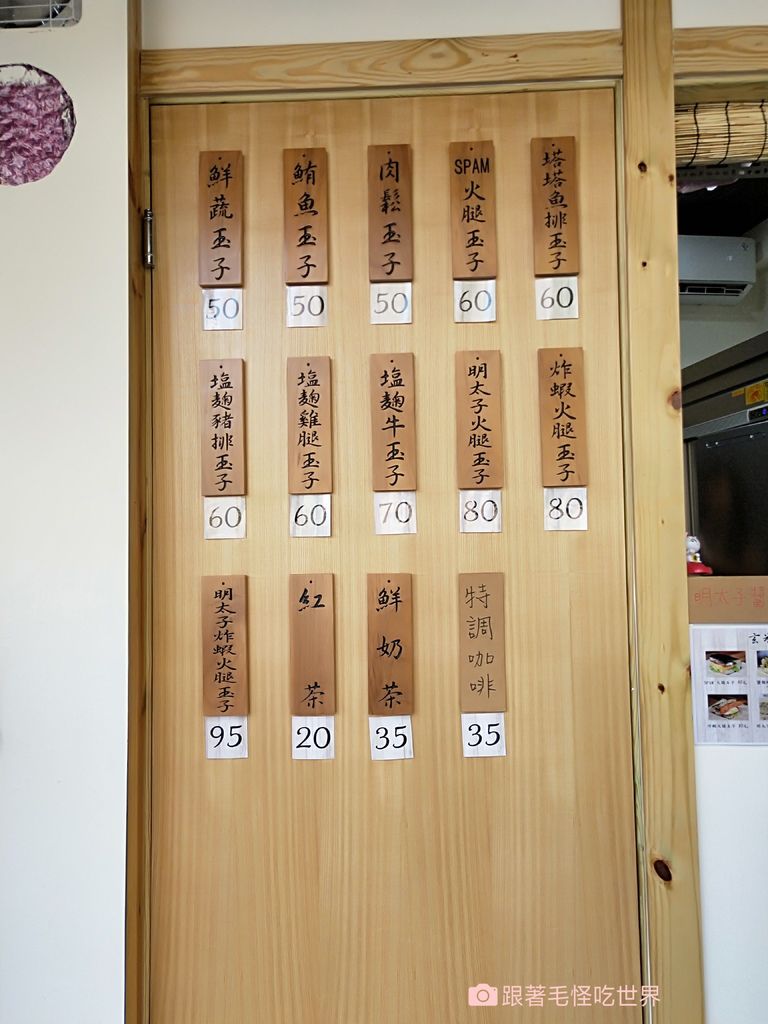 鮮蔬玉子
50
鮪魚玉子
50
肉鬆玉子
50
SPAM火腿玉子
60
塔塔魚排玉子
60
塩麴豬排玉子
60
塩麴雞腿玉子
60
塩麴牛玉子
70
明太子火腿玉子
80
炸蝦火腿玉子
80
明太子炸蝦火腿玉子
95
紅茶
20
鮮奶茶
35
特調咖啡
35
明太子醬
跟著毛怪吃世界